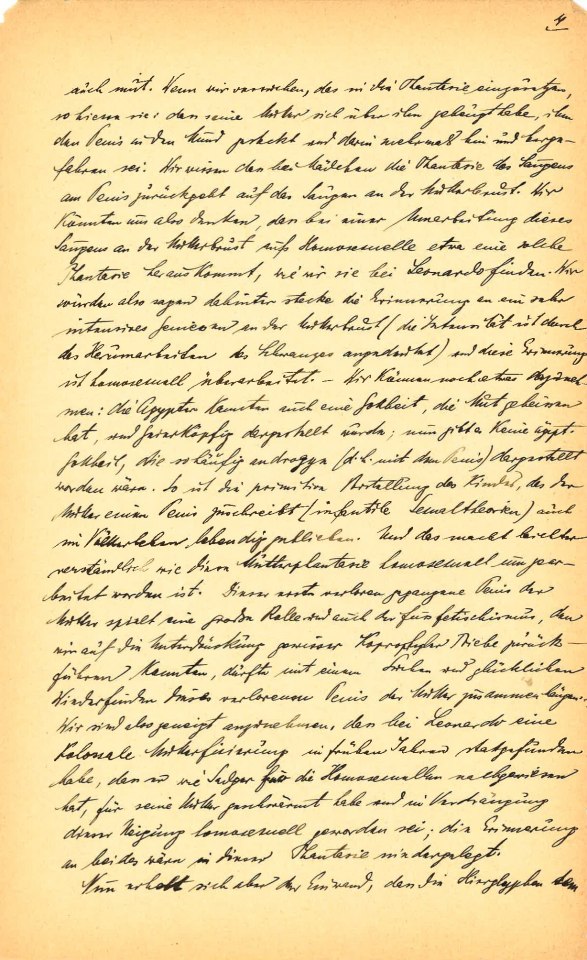 4
auch mut. Wenn wir versuchen, das in die Phantasie einzusetzen,
so hiesse sie: dass seine Mutter sich über ihn gebeugt habe, ihm
den Penis in den Mund gesteckt und darin mehrmals hin und herge-
fahren sei. Wir wissen dass bei Mädchen die Phantasie des Saugens
am Penis zurückgeht auf das Saugen an der Mutterbrust. Wir
könnten uns also denken, dass bei einer Umarbeitung dieses
Saugens an der Mutterbrust ins Homosexuelle etwa eine solche
Phantasie herauskommt, wie wir sie bei Leonardo finden. Wir
würden also sagen dahinter stecke die Erinnerung an ein sehr
intensives Geniessen an der Mutterbrust (die Intensität ist durch
das Herumarbeiten des Schwanzes angedeutet) und diese Erinnerung
ist homosexuell überarbeitet. – Wir können noch etwas dazuneh-
men: die Ägypter kannten auch eine Gottheit, die Mut geheissen
hat, und geierköpfig dargestellt wurde; nun gibt es keine ägypt.
Gottheit, die so häufig androgyn (d.h. mit dem Penis) dargestellt
worden wäre. So ist die primitive Vorstellung des Kindes, das der
Mutter einen Penis zuschreibt (infantile Sexualtheorien) auch
im Völkerleben lebendig geblieben. Und das macht leichter
verständlich wie diese Mutterphantasie homosexuell umgear-
beitet worden ist. Dieser erste verloren gegangene Penis der
Mutter spielt eine grosse Rolle und auch der Fussfetischismus, den
wir auf die Unterdrückung gewisser Koprophiler Triebe zurück-
führen konnten, dürfte mit einem Suchen und glücklichen
Wiederfinden dieses verlorenen Penis der Mutter zusammenhängen.
Wir sind also geneigt anzunehmen, dass bei Leonardo eine
Kolossale Mutterfixierung in frühen Jahren stattgefunden
habe, dass er wie Sadger für die Homosexuellen nachgewiesen
hat, für seine Mutter geschwärmt habe und in Verdrängung
dieser Neigung homosexuell geworden sei; die Erinnerung
an beides wäre in dieser Phantasie niedergelegt.
Nun erhebt sich aber der Einwand, dass die Hieroglyphen dem